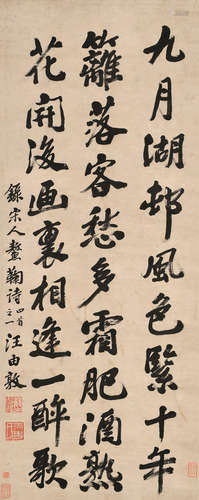 九月湖邨風色緊十年
籬落客愁多霜肥酒熟
花開後画裏相逢一醉歌
錄宋人螯菊詩四首之一汪由敦